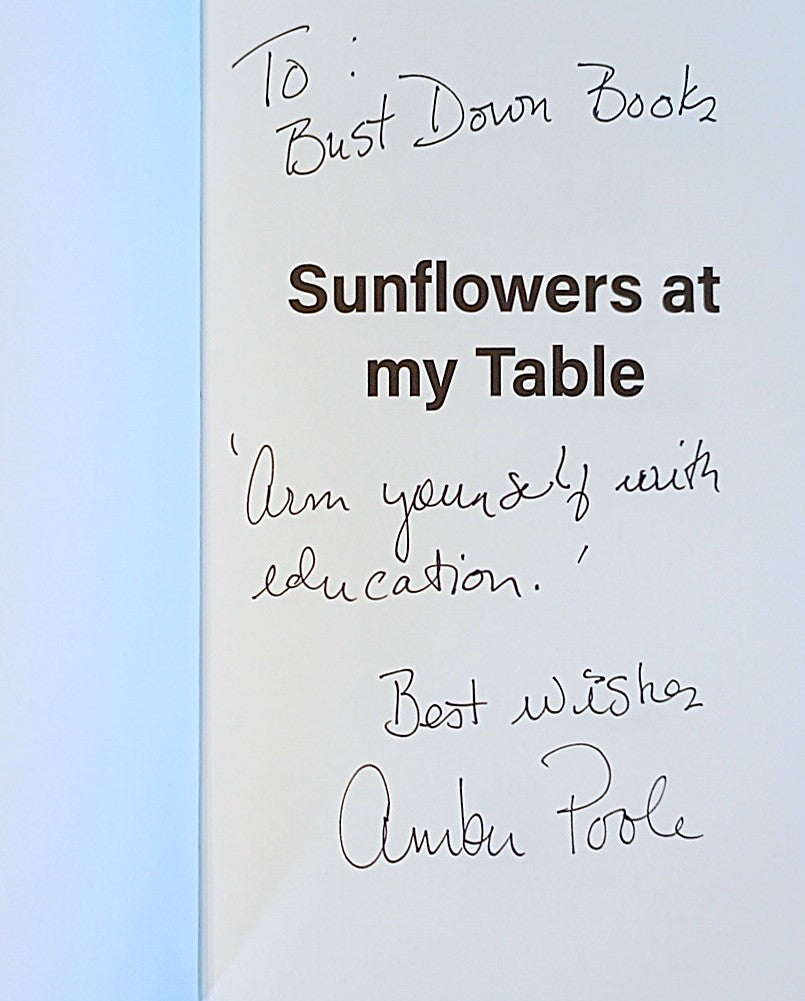 To :
Bust Down Books
Sunflowers at
my Table
'Arm yourself with
education.'
Best wishes
Amber Poole